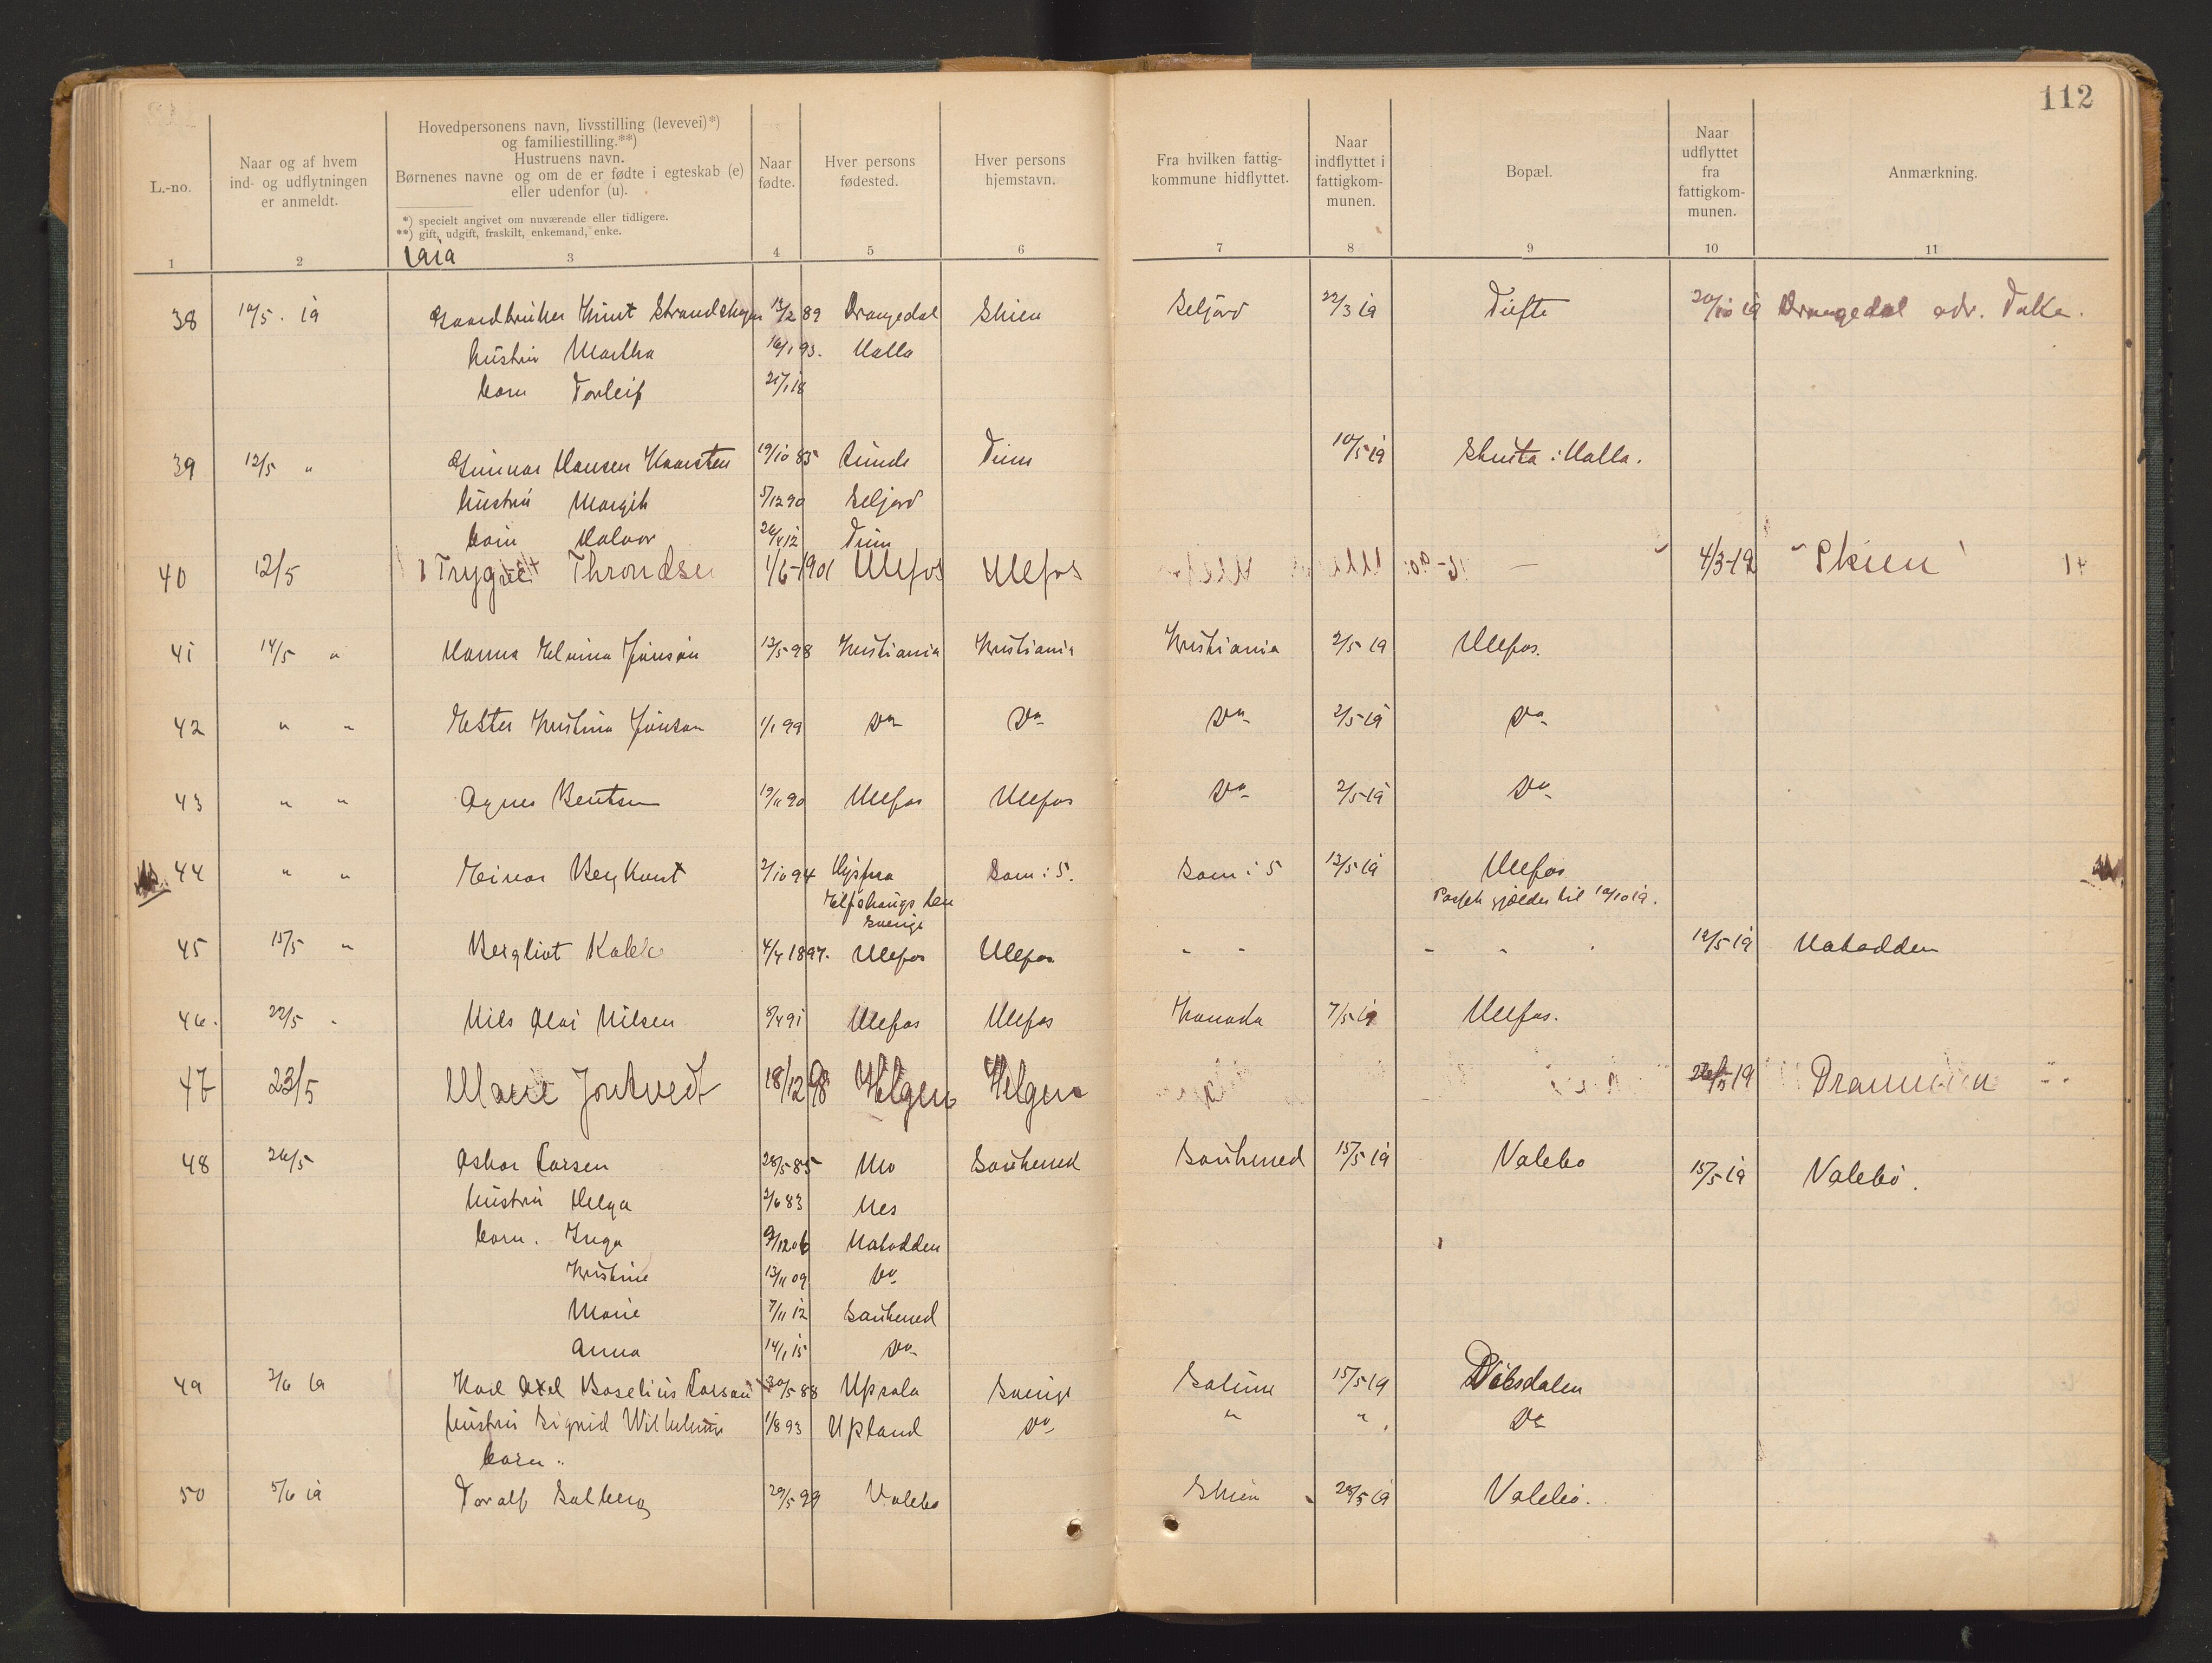 112
L.-no.
Naar og af hvem
ind- og udflytningen
er anmeldt.
Hovedpersonens navn, livsstilling (levevei)*)
og familiestilling.**)
Hustruens navn.
Børnenes navne og om de er fødte i egteskab (e)
eller udenfor (u).
*) specielt angivet om nuværende eller tidligere.
**) gift, udgift, fraskilt, enkemand, enke.
Naar
fødte.
Hver persons
fødested.
Hver persons
hjemstavn.
Fra hvilken fattig-
kommune hidflyttet.
Naar
indflyttet i
fattigkom-
munen.
Bopæl.
Naar
udflyttet
fra
fattigkom-
munen.
Anmærkning.
1 2 3 4 5 6 7 8 9 10 11
1919
38 10/5. 19 Gaardbruker Knut 12/2 89 Drangedal Skien Seljord 22/3 19 Tufte 20/10 19 Drangedal adr. Toke.
hustru Martha 16/1 93. Holla
barn Torleif 21/1 18
39 12/5 " Gunnar Hansen Kaasten 19/10 85 Lunde Dium 10/5 19 i Holla.
hustru Margit 5/12 90 Seljord
barn Halvor 26/4 12
40 12/5 Trygve Throndsen 1/6-1901 Ulefos Ulefos — 4/3-19 Skien
41 14/5 " Hanna Elvina Jonson 13/5 98 Kristiania Kristiania Kristiania 2/5 19 Ulefos.
42 " " Ester Kristina Jonson 1/1 99 Do Do Do 2/5-19 Do
43 " " Agnes Bentsen 19/11 90 Ulefos Ulefos Do 2/5-19 Do
44 " " Einar Berg 2/10 94 Som i 5. Som i 5 13/5 19 Ulefos
Sverige
Passet gjelder til 10/10 19.
45 15/5 " Bergliot Kalek 4/4 1897. Ulefos Ulefos " " " " 12/5 19 Notodden
46. 22/5 " Nils Olai Nilsen 8/4 91 Ulefos Ulefos Kanada 7/5 19 Ulefos.
47 23/5 Marie Jontvedt 18/12 98 Helgen Helgen 19 Drammen
48 26/5 Oskar Larsen 28/5 85 Mo Sauherred Sauherred 15/5 19 Valebo 15/5 19 Valebö.
hustru Helga 2/6 83 Nes
barn. Inga 9/12 06 Notodden
Kristine 13/11 09 Do
Marie 7/11 12 Sauherred
Anna 14/1 15 Do
49 2/6 19 Karl Axel Boselius Larson 30/5 88 Upsala Sverige Solum 15/5 19
hustru Sigrid Wilhelmine 1/8 93 Upland Do " " Do
barn "
50 5/6 19 Toralf Solberg 29/5 99 Valebo Skien 28/5 19 Valebö.